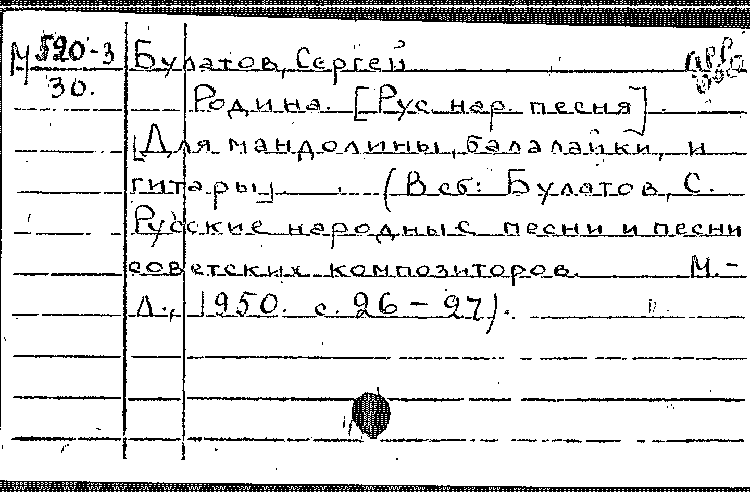 М 520-3
30.
Булатов, Сергей
Родина. [Рус. нар. песня].
[Для мандолины, балалайки, и
гитары]. (В сб: Булатов, С.
Русские народные песни и песни
советских композиторов. М.-
Л., 1950. с. 26-27).